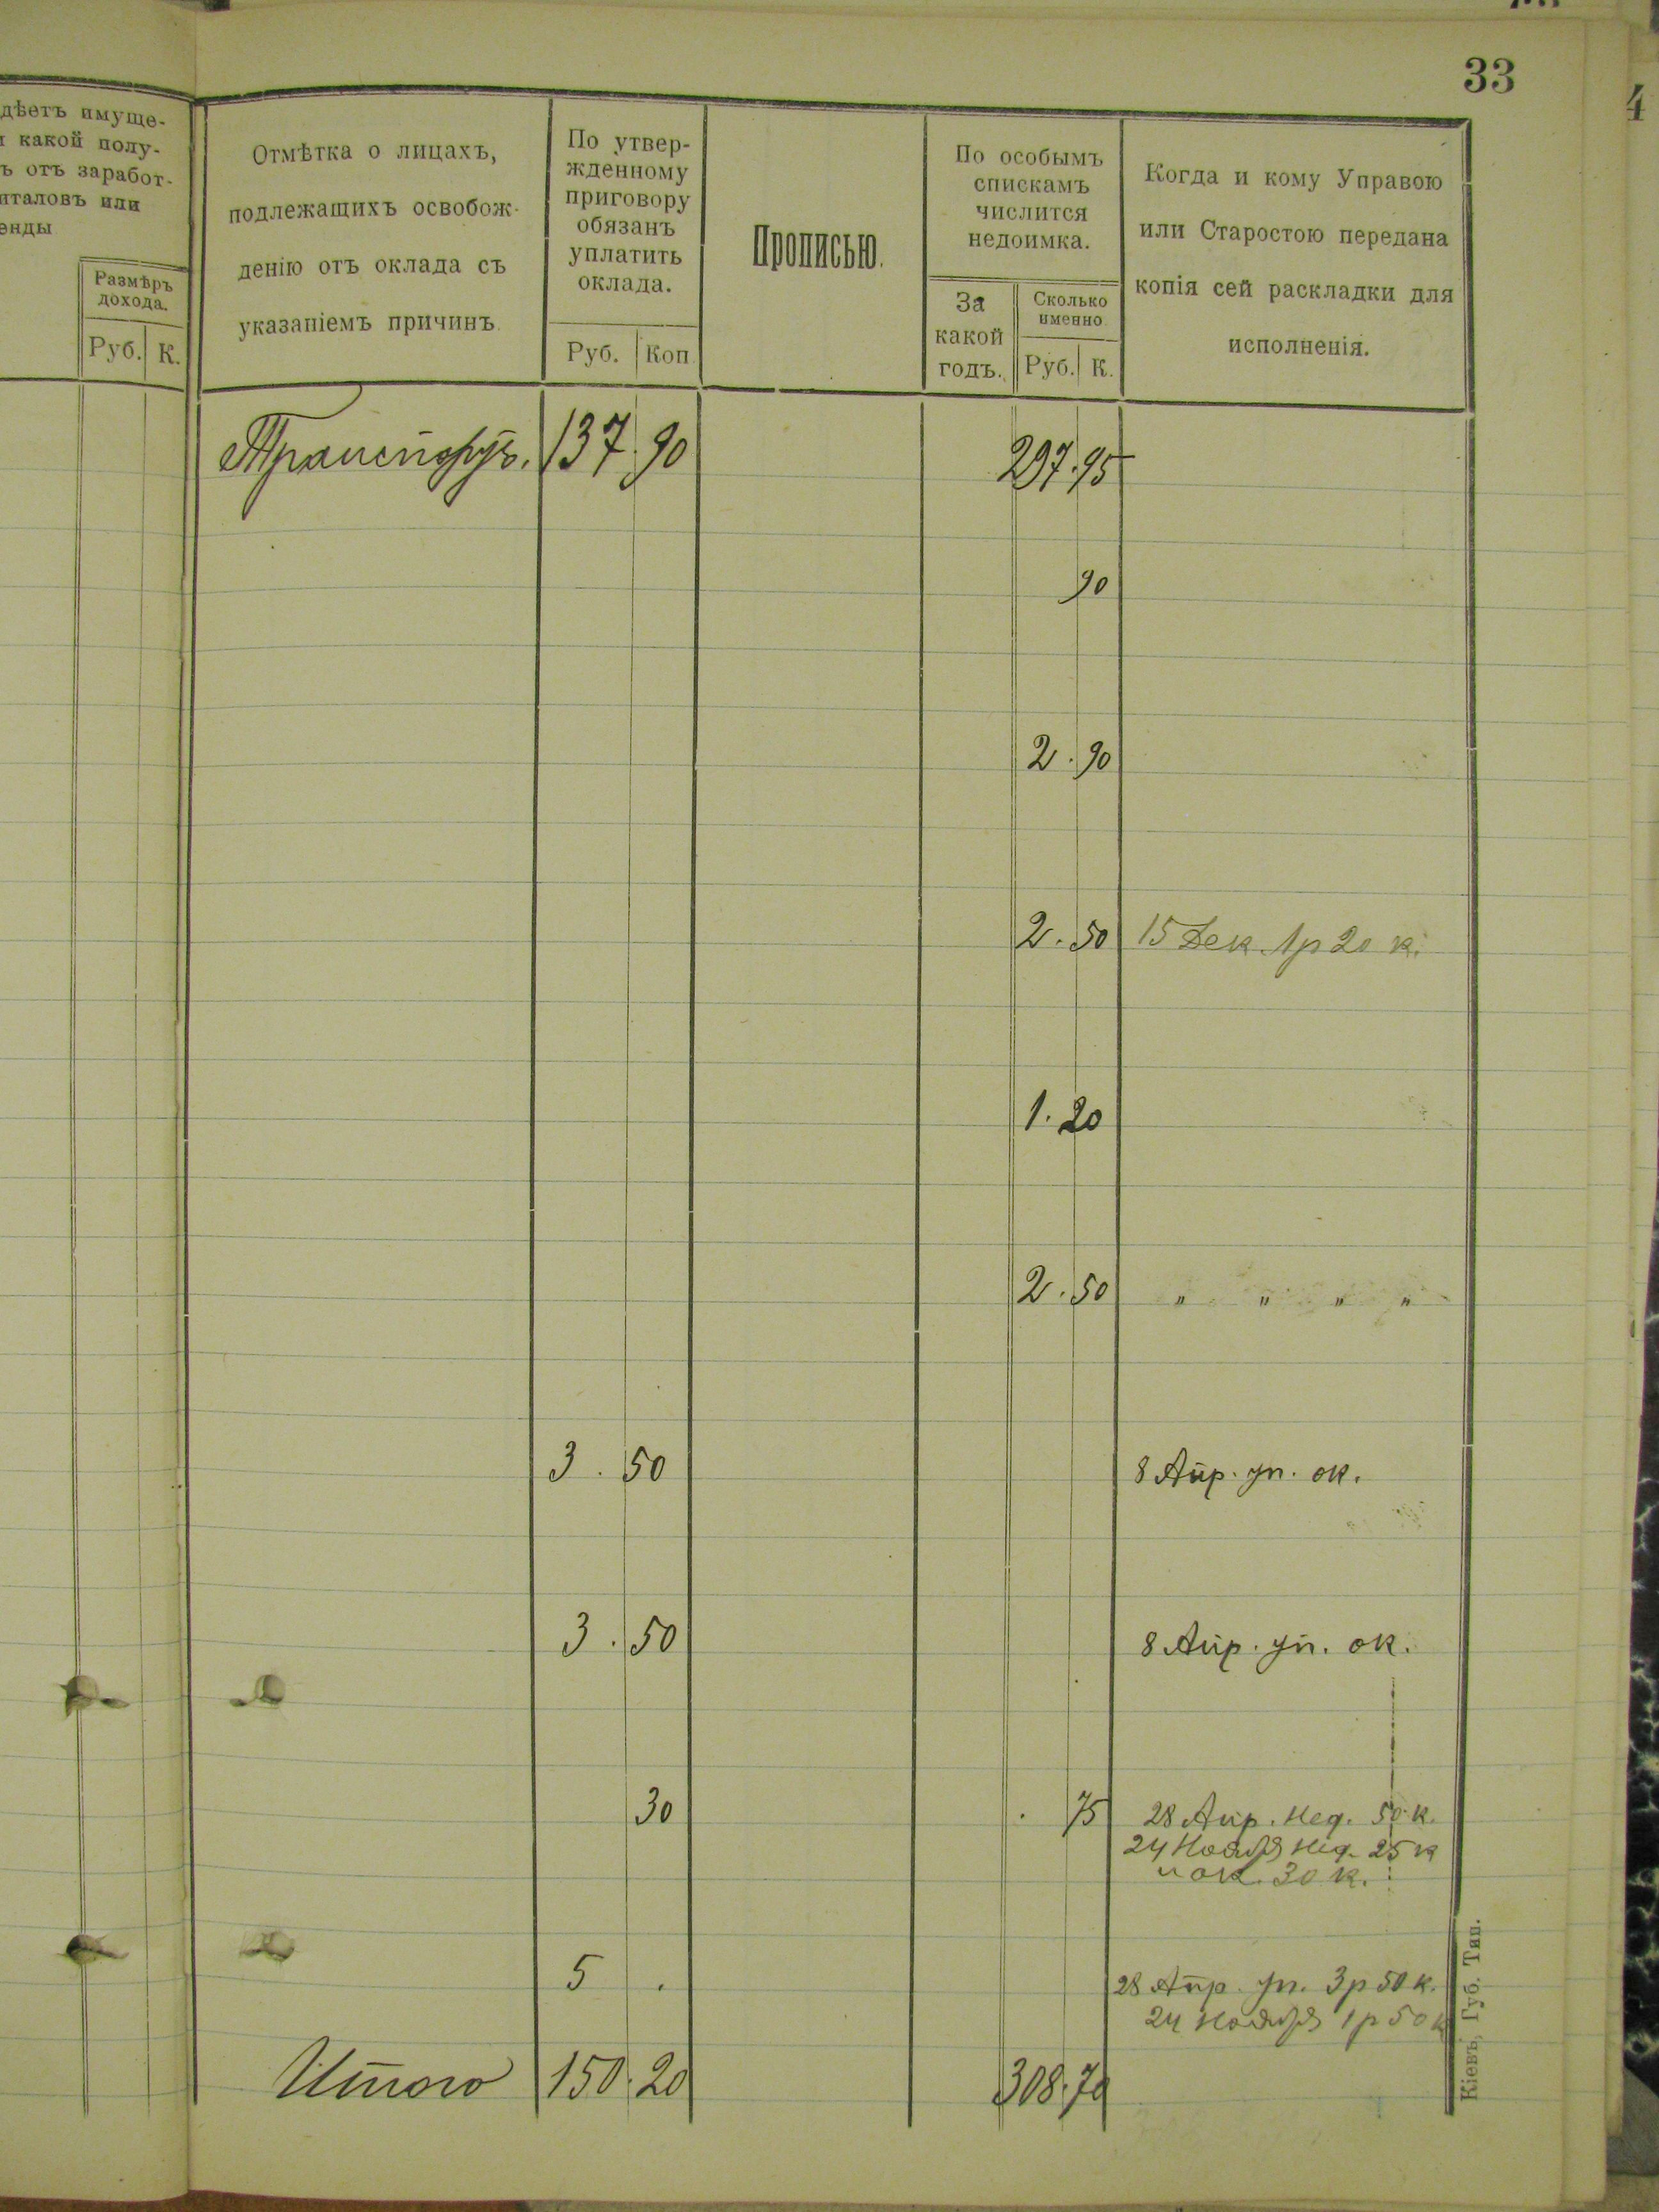 33
4
дѣетъ имуще-
и какой полу-
ъ отъ заработ-
италовъ или
енды
Размѣръ
дохода.
Руб. К.
Отмѣтка о лицахъ,
подлежащихъ освобож-
денію отъ оклада съ
указаніемъ причинъ
По утвер-
жденному
приговору
обязанъ
уплатить
оклада.
Руб. Коп.
Прописью.
По особымъ
спискамъ
числится
недоимка.
За
какой
годъ.
Сколько
именно
Руб. К.
Когда и кому Управою
или Старостою передана
копія сей раскладки для
исполненія.
Транспортъ. 137 90 297.95
90
2.90
2.50 15 Дек. 1р 20 к.
1.20
2.50 " " " "
3.50 8 Апр. уп. ок.
3.50 8 Апр. уп. ок.
30 . 75 28 Апр. нед. 50 к.
24 Ноября нед. 25 к
и ок. 30 к.
5 . 28 Апр. уп. 3р 50 к.
24 Ноября 1р 50 к
Итого 150.20 308.70
Кіевъ, Губ. Тип.